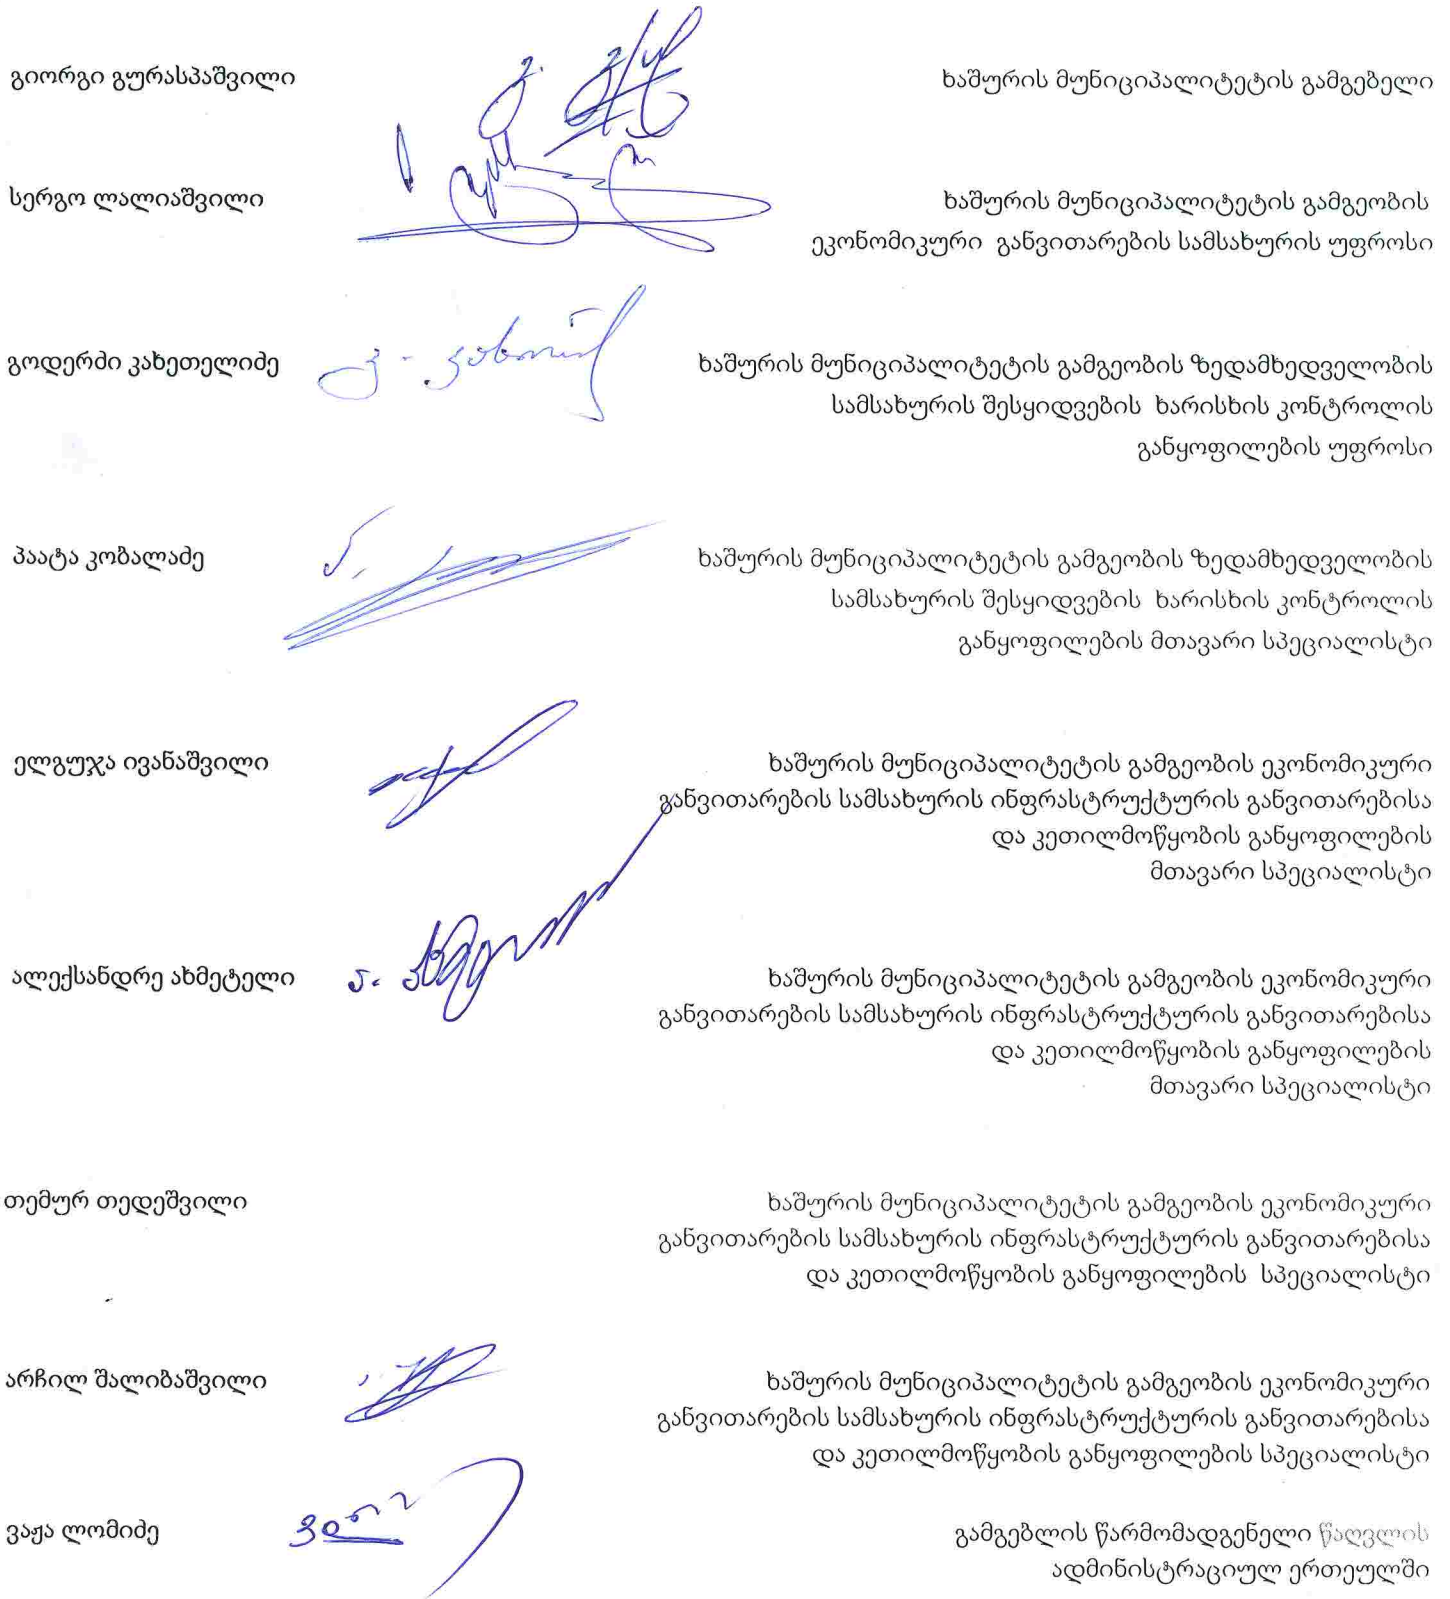 გიორგი გურასპაშვილი
ხაშურის მუნიციპალიტეტის გამგებელი
სერგო ლალიაშვილი
ხაშურის მუნიციპალიტეტის გამგეობის
ეკონომიკური განვითარების სამსახურის უფროსი
გოდერძი კახეთელიძე
ხაშურის მუნიციპალიტეტის გამგეობის ზედამხედველობის
სამსახურის შესყიდვების ხარისხის კონტროლის
განყოფილების უფროსი
პაატა კობალაძე
ხაშურის მუნიციპალიტეტის გამგეობის ზედამხედველობის
სამსახურის შესყიდვების ხარისხის კონტროლის
განყოფილების მთავარი სპეციალისტი
ელგუჯა ივანაშვილი
ხაშურის მუნიციპალიტეტის გამგეობის ეკონომიკური
განვითარების სამსახურის ინფრასტრუქტურის განვითარებისა
და კეთილმოწყობის განყოფილების
მთავარი სპეციალისტი
ალექსანდრე ახმეტელი
ხაშურის მუნიციპალიტეტის გამგეობის ეკონომიკური
განვითარების სამსახურის ინფრასტრუქტურის განვითარებისა
და კეთილმოწყობის განყოფილების
მთავარი სპეციალისტი
თემურ თედეშვილი
ხაშურის მუნიციპალიტეტის გამგეობის ეკონომიკური
განვითარების სამსახურის ინფრასტრუქტურის განვითარებისა
და კეთილმოწყობის განყოფილების სპეციალისტი
არჩილ შალიბაშვილი
ხაშურის მუნიციპალიტეტის გამგეობის ეკონომიკური
განვითარების სამსახურის ინფრასტრუქტურის განვითარებისა
და კეთილმოწყობის განყოფილების სპეციალისტი
ვაჟა ლომიძე
გამგებლის წარმომადგენელი წაღვლის
ადმინისტრაციულ ერთეულში